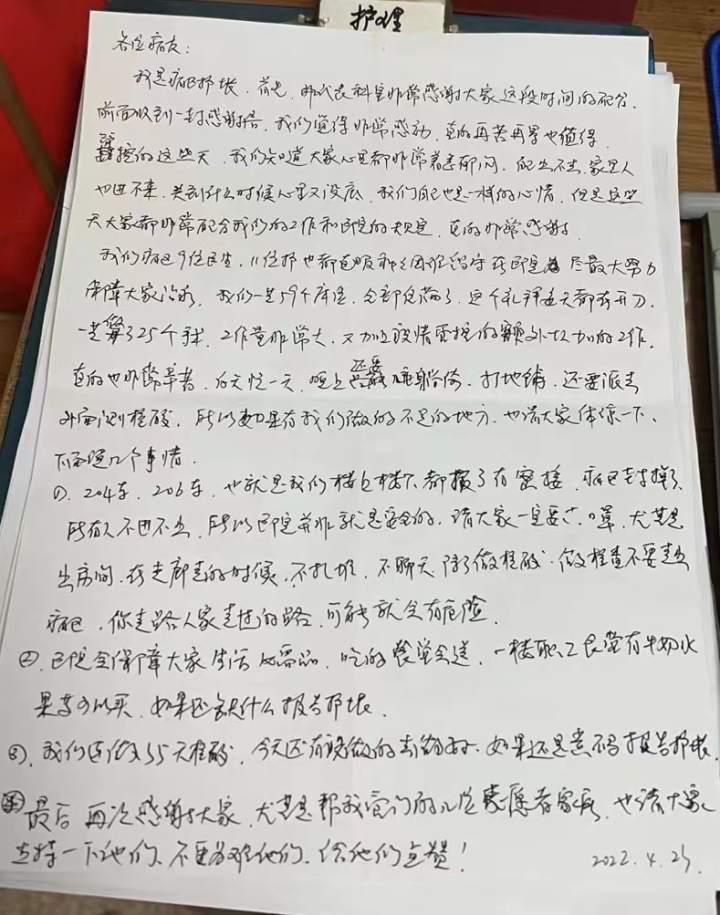 护理
各位病友:
我是病区护长,首先,我代表科室非常感谢大家这段时间的配合,
前面收到一封感谢信,我们觉得非常感动,真的再苦再累也值得,
管控的这些天,我们知道大家心里都非常着急郁闷,自己出不去,家里人
也进不来,关到什么时候心里又没底,我们自己也是一样的心情,但是这些
天大家都非常配合我们的工作和医院的规定,真的非常感谢,
我们病区9位医生,11位护士都克服种种困难留守在医院 尽最大努力
保障大家治疗,我们一共59个床位,全部住满了,这个礼拜每天都有开刀,
一共 了25个手术,工作量非常大,又加上疫情管控的额外增加的工作,
真的也非常辛苦,白天忙一天,晚上 睡躺椅,打地铺,还要派去
外面测核酸,所以如果有我们做的不足的地方,也请大家体谅一下,
下面强调几个事情.
①. 204床,206床,也就是我们楼上楼下都报了有密接,病区封掉了,
所有人不进不出,所以医院并非就是安全的,请大家一定要戴口罩,尤其是
出房间,在走廊走的时候,不扎堆,不聊天,除了做核酸,做检查不要走出
病区,你走的路人家走过的路,可能就会有危险.
②.医院会保障大家生活必需品,吃的食堂会送,一楼职工食堂有牛奶水
果等可以买,如果还缺什么报告护长.
③.我们连做35天核酸,今天还有没做的去做好.如果还是黄码报告护长.
④最后再次感谢大家,尤其是帮我管门的几位志愿者家属,也请大家
支持一下他们,不要为难他们,给他们点赞!
2022.4.25.